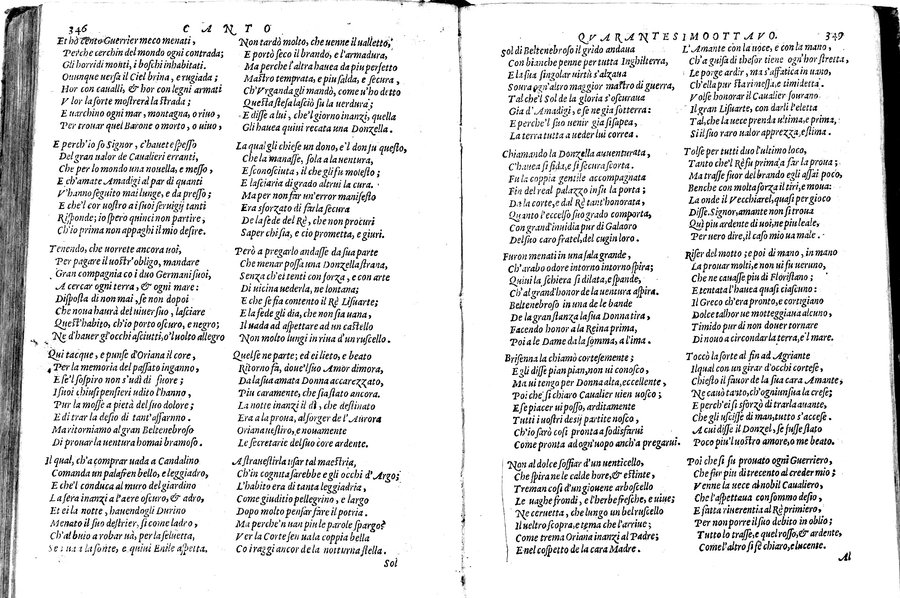 346 CANTO
Et hò cento Guerrier meco menati,
Perche cerchin del mondo ogni contrada;
Gli horridi monti, i boschi inhabitati.
Ouunque uersa il Ciel brina, e rugiada;
Hor con caualli, & hor con legni armati
V'lor la sorte mostrerà la strada;
E uarchino ogni mar, montagna, o riuo,
Per trouar quel Barone o morto, o uiuo,
E perch'io so Signor, c'hauete spesso
Del gran ualor de Caualieri erranti,
Che per lo mondo una nouella, e messo,
E ch'amate Amadigi al par di quanti
V'hanno seguito mai lunge, e da presso;
E che'l cor uostro a i suoi seruigi tanti
Risponde; io spero quinci non partire,
Ch'io prima non appaghi il mio desire.
Tenendo, che uorrete ancora uoi,
Per pagare il uostr'obligo, mandare
Gran compagnia co i duo Germani suoi,
A cercar ogni terra, & ogni mare:
Disposta di non mai, se non dopoi
Che noua haurà del uiuer suo, lasciare
Quest'habito, ch'io porto oscuro, e negro;
Ne d'hauer gl'occhi asciutti, o'l uolto allegro
Qui tacque, e punse d'Oriana il core,
Per la memoria del passato inganno,
E se'l sospiro non s'udì di fuore;
I suoi chiusi pensieri udito l'hanno,
Pur la mosse a pietà del suo dolore;
E di trar la desio di tant'affanno.
Ma ritorniamo al gran Beltenebroso
Di prouar la uentura homai bramoso.
Il qual, ch'a comprar uada a Candalino
Comanda un palafren bello, e leggiadro,
E che'l conduca al muro del giardino
La sera inanzi a l'aere oscuro, & adro,
Et ei la notte, hauendogli Durino
Menato il suo destrier, si come ladro,
Ch'al buio a robar uà, per la selvetta,
Se n'ua a la fonte, e quini Enile aspetta.
Non tardò molto, che uenne il ualletto,
E portò seco il brando, e l'armadura,
Ma perche l'altra hauea da piu perfetto
Mastro temprata, e piu salda, e secura,
Ch'Vrganda gli mandò, come u'ho detto
Questa stessa lasciò su la uerdura;
E disse a lui, che'l giorno inanzi, quella
Gli hauea quini recata una Donzella.
La qual gli chiese un dono, e'l don fu questo,
Che la manasse, sola a la uentura,
E sconosciuta, il che gli fu molesto;
E lasciaria di grado altrui la cura.
Ma per non far un'error manifesto
Era sforzato di far la secura
De la fede del Rè, che non procuri
Saper chi sia, e cio prometta, e giuri.
Però a pregarlo andasse da sua parte
Che menar possa una Donzella strana,
Senza ch'ei tenti con forza, e con arte
Di uicina uederla, ne lontana;
E che se fia contento il Rè Lisuarte;
E la fede gli dia, che non sia uana,
Il uada ad aspettare ad un castello
Non molto lungi in riua d'un ruscello.
Quel se ne parte; ed ei lieto, e beato
Ritorno fà, doue'l suo Amor dimora,
Da la sua amata Donna accarezzato,
Piu caramente, che sia stato ancora.
La notte inanzi il dì, che destinato
Era a la proua, al sorger de l'Aurora
Oriana uestiro, e nouamente
Le secretarie del suo core ardente.
A strauestirla usar tal maestria,
Ch'incognita sarebbe a gli occhi d'Argo;
L'habito era di tanta leggiadria,
Come giuditio pellegrino, e largo
Dopo molto pensar fare il potria.
Ma perche'n uan piu le parole spargo?
Ver la Corte sen ua la coppia bella
Co i raggi ancor de la notturna stella.
Sol
QVARANTESIMOOTTAVO. 349
Sol di Beltenebroso il grido andaua
Con bianche penne per tutta Inghilterra,
E la sua singular uirtù s'alzaua
Soura ogn'altro maggior mastro di guerra,
Tal che'l Sol de la gloria s'oscuraua
Gia d'Amadigi, e se ne gia sotterra:
E perche'l suo uenir gia si sapea,
La terra tutta a ueder lui correa.
Chiamando la Donzella auuenturata,
C'hauea si fida, e si secura scorta,
Fu la coppia gentile accompagnata
Fin del real palazzo in su la porta;
Da la corte, e dal Rè tant'honorata,
Quanto l'eccelso suo grado comporta,
Con grand'inuidia pur di Galaoro
Del suo caro fratel, del cugin loro.
Furon menati in una sala grande,
Ch'arabo odore intorno intorno spira;
Quiui la schiera si dilata, e spande,
Ch'al grand'honor de la uentura aspira.
Beltenebroso in una de le bande
De la gran stanza la sua Donna tira,
Facendo honor a la Reina prima,
Poi a le Dame da la somma, a l'ima.
Brisenna la chiamò cortesemente;
E gli disse pian pian, non ui conosco,
Ma ui tengo per Donna alta, eccellente,
Poi che'si chiaro Caualier uien uosco;
E se piacer ui posso, arditamente
Tutti i uostri desij partite nosco,
Ch'io sarò così pronta a sodisfarui
Come pronta ad ogn'uopo anch'a pregarui.
Non al dolce soffiar d'un uenticello,
Che spira ne le calde hore, & estinte,
Treman così d'un giouene arboscello
Le uaghe frondi, e l'herbe fresche, e uiue;
Ne ceruetta, che lungo un bel ruscello
Il ueltro scopra, e tema che l'arriue;
Come trema Oriana inanzi al Padre;
E nel cospetto de la cara Madre.
L'Amante con la uoce, e con la mano,
Ch'a guisa di thesor tiene ogn'hor stretta,
Le porge ardir, ma s'affatica in uano,
Ch'ella pur sta rimessa, e timidetta.
Volse honorar il Caualier sourano
Il gran Lisuarte, con darli l'eletta
Tal, che la uece prenda u'tima, e prima,
Si il suo raro ualor apprezza, e stima.
Tolse per tutti duo l'ultimo loco,
Tanto che'l Rè su prima a far la proua;
Ma trasse fuor del brando egli assai poco,
Benche con molta forza il tiri, e moua:
La onde il Vecchiarel, quasi per gioco
Disse, Signor, amante non si troua
Quì piu ardente di uoi, ne piu leale,
Per uero dire, il caso mio ua male.
Riser del motto; e poi di mano, in mano
La prouar molti, e non ui fu ueruno,
Che ne cauasse piu di Floristano;
E tentata l'hauea quasi ciascuno:
Il Greco ch'era pronto, e cortigiano
Dolce talhor ue motteggiaua alcuno,
Timido pur di non douer tornare
Di nouo a circondar la terra, e'l mare.
Toccò la sorte al fin ad Agriante
Il qual con un girar d'occhi cortese,
Chiesto il fauor de la sua cara Amante,
Ne cauò tanto, ch'ogniun sua la crese;
E perch'ei si sforzò di trarla auante,
Che gli uscisse di man, tutto s'accese.
A cui disse il Donzel, se fusse stato
Poco piu'l uostro amore, o me beato.
Poi che si fu prouato ogni Guerriero,
Che fur piu di trecento al creder mio;
Venne la uece al nobil Caualiero,
Che l'aspettaua con sommo desio,
E fatta riuerentia al Rè primiero,
Per non porre il suo debito in oblio;
Tutto lo trasse, e quel rosso, & ardente,
Come l'altro si fè chiaro, e lucente.
Al